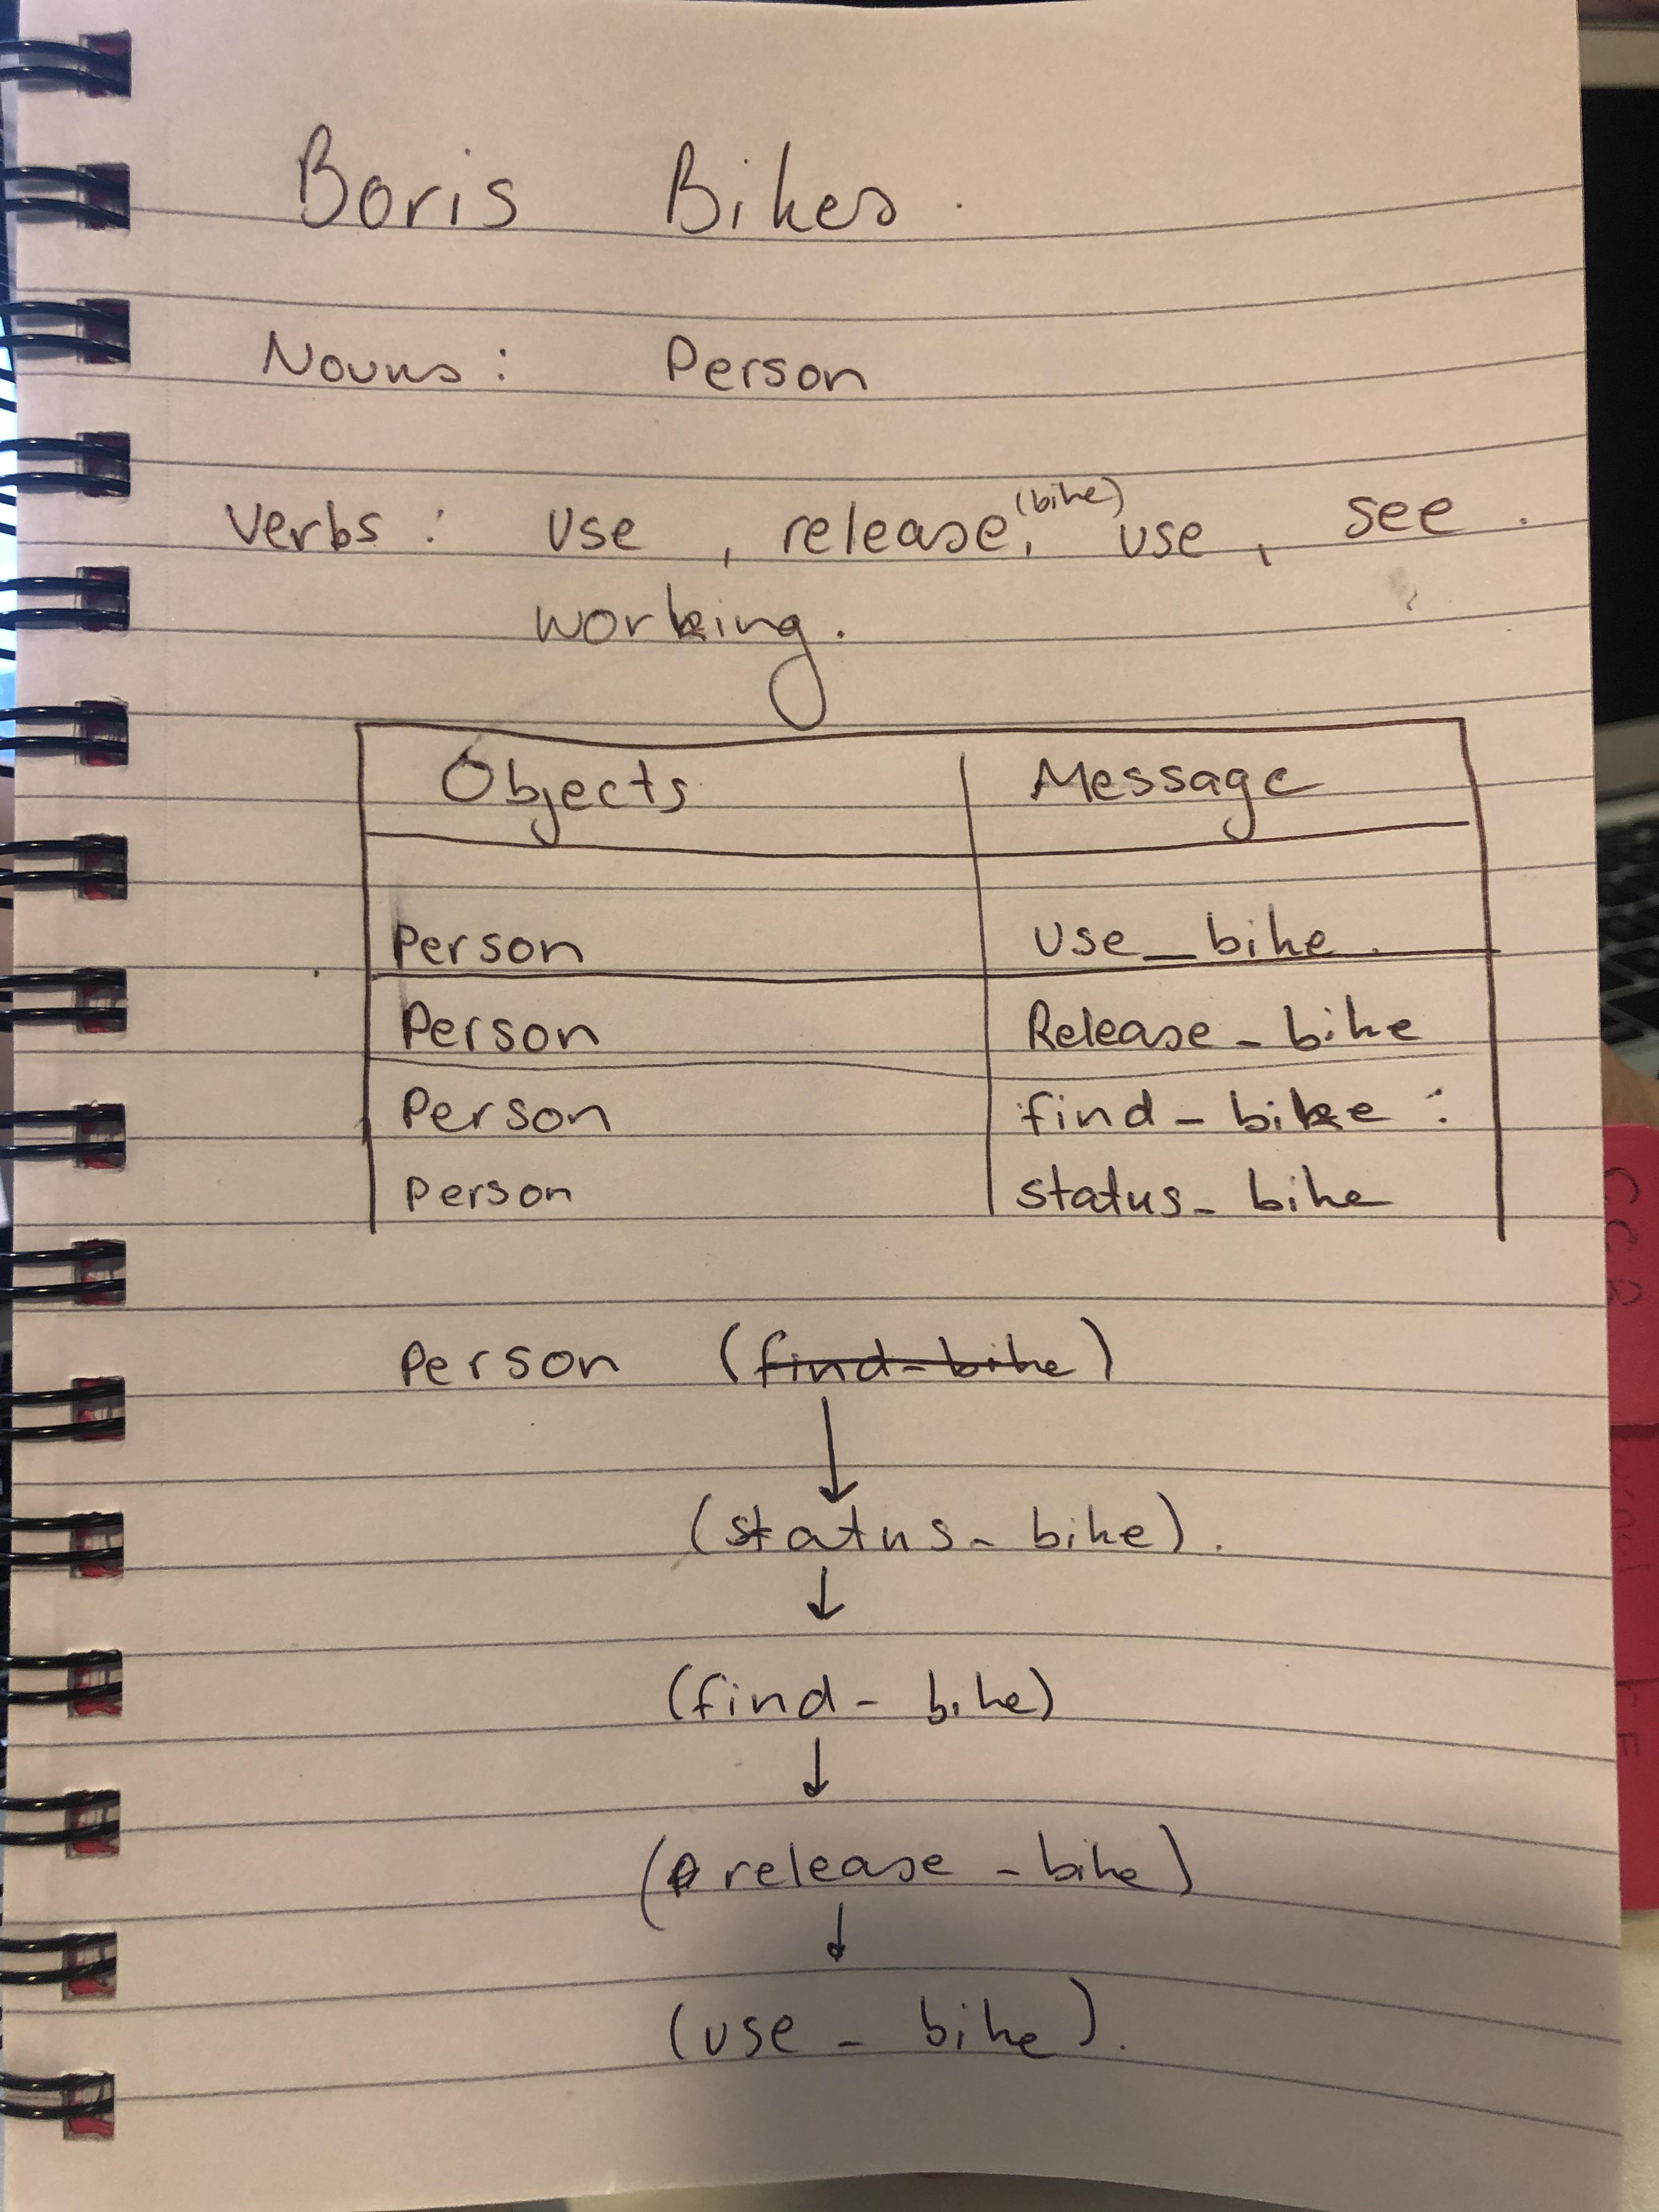 Boris Bikes.
Nouns: Person
Verbs: Use, release, (bike) use, see.
working.
Objects Message
Person Use_bike.
Person Release_bike
Person find_bike:
Person status_bike
Person (find-bike)
(status_bike).
(find-bike)
(release_bike)
(use_bike).